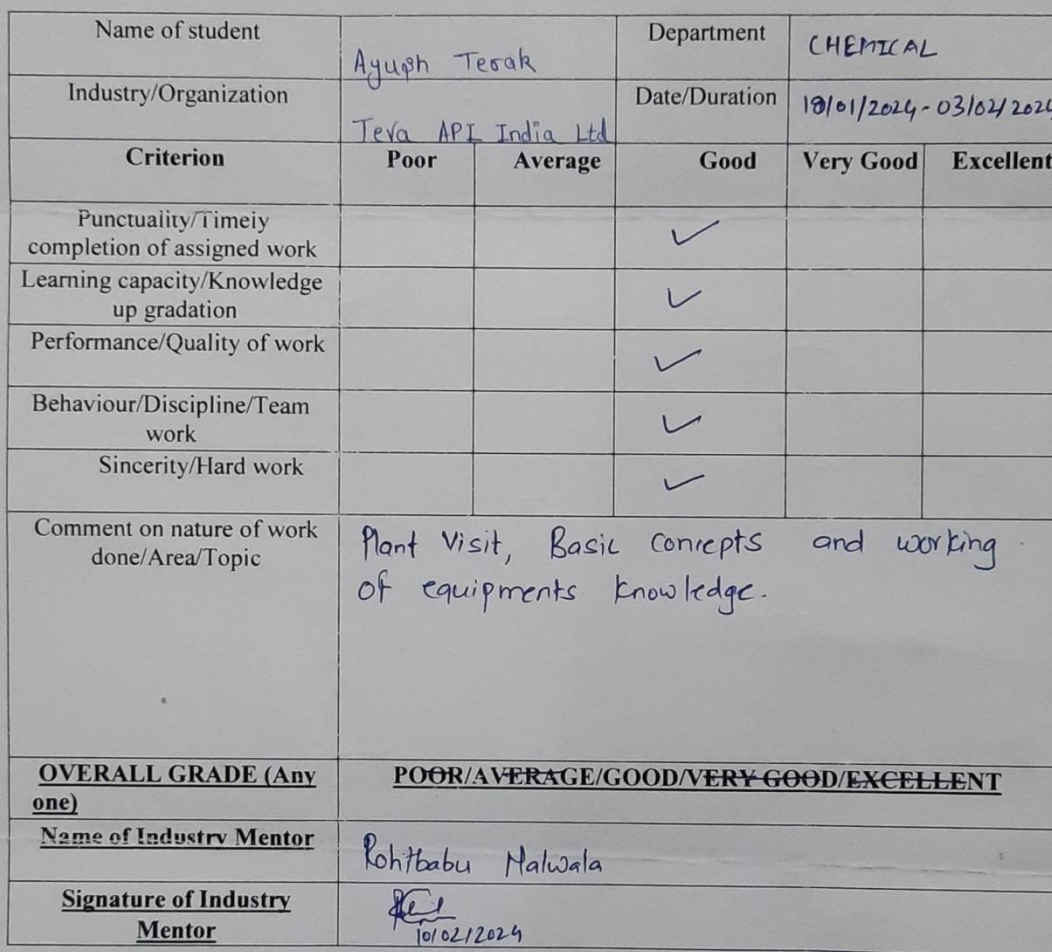 Name of student
Ayush Terak
Department
CHEMICAL
Industry/Organization
Teva API India Ltd
Date/Duration
18/01/2024 - 03/02/2024
Criterion Poor Average Good Very Good Excellent
Punctuality/Timely
completion of assigned work
Learning capacity/Knowledge
up gradation
Performance/Quality of work
Behaviour/Discipline/Team
work
Sincerity/Hard work
Comment on nature of work
done/Area/Topic
Plant Visit, Basic Concepts and working
of equipments knowledge.
OVERALL GRADE (Any
one)
POOR/AVERAGE/GOOD/VERY GOOD/EXCELLENT
Name of Industry Mentor
Rohitbabu Malwala
Signature of Industry
Mentor
10/02/2024